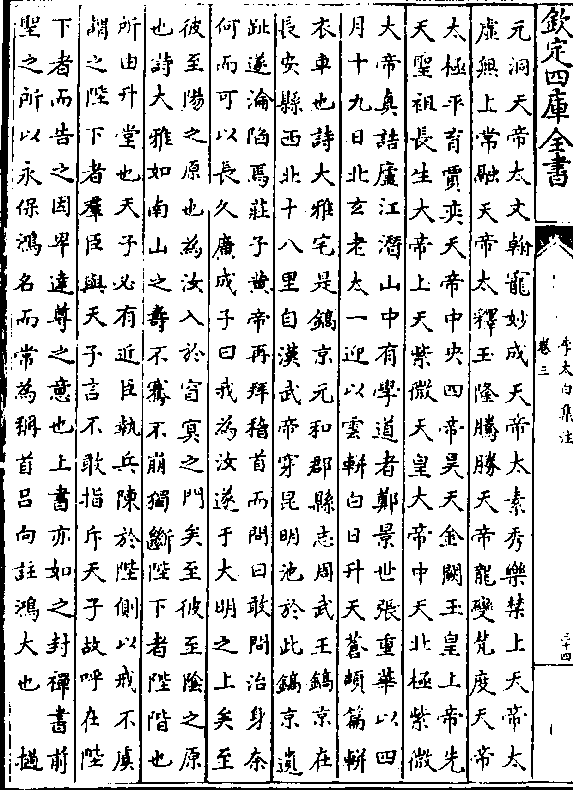 欽定四庫全書
李太白集注
卷三
三十四
元洞天帝太文翰寵妙成天帝太素秀樂禁上天帝太
虛無上常融天帝太釋玉隆騰勝天帝龍變梵度天帝
太極平育賈奕天帝中央四帝昊天金闕玉皇上帝先
天聖祖長生大帝上天紫微天皇大帝中天北極紫微
大帝真誥廬江潛山中有學道者鄭景世張重華以四
月十九日北玄老太一迎以雲軿白日升天蒼頡篇軿
衣車也詩大雅宅是鎬京元和郡縣志周武王鎬京在
長安縣西北十八里自漢武帝穿昆明池於此鎬京遺
趾遂淪陷焉莊子黃帝再拜稽首而問曰敢問治身奈
何而可以長久廣成子曰我為汝遂于大明之上矣至
彼至陽之原也為汝入於窅冥之門矣至彼至陰之原
也詩大雅如南山之壽不騫不崩獨斷陛下者陛階也
所由升堂也天子必有近臣執兵陳於陛側以戒不虞
謂之陛下者羣臣與天子言不敢指斥天子故呼在陛
下者而告之因卑達尊之意也上書亦如之封禪書前
聖之所以永保鴻名而常為稱首呂向註鴻大也